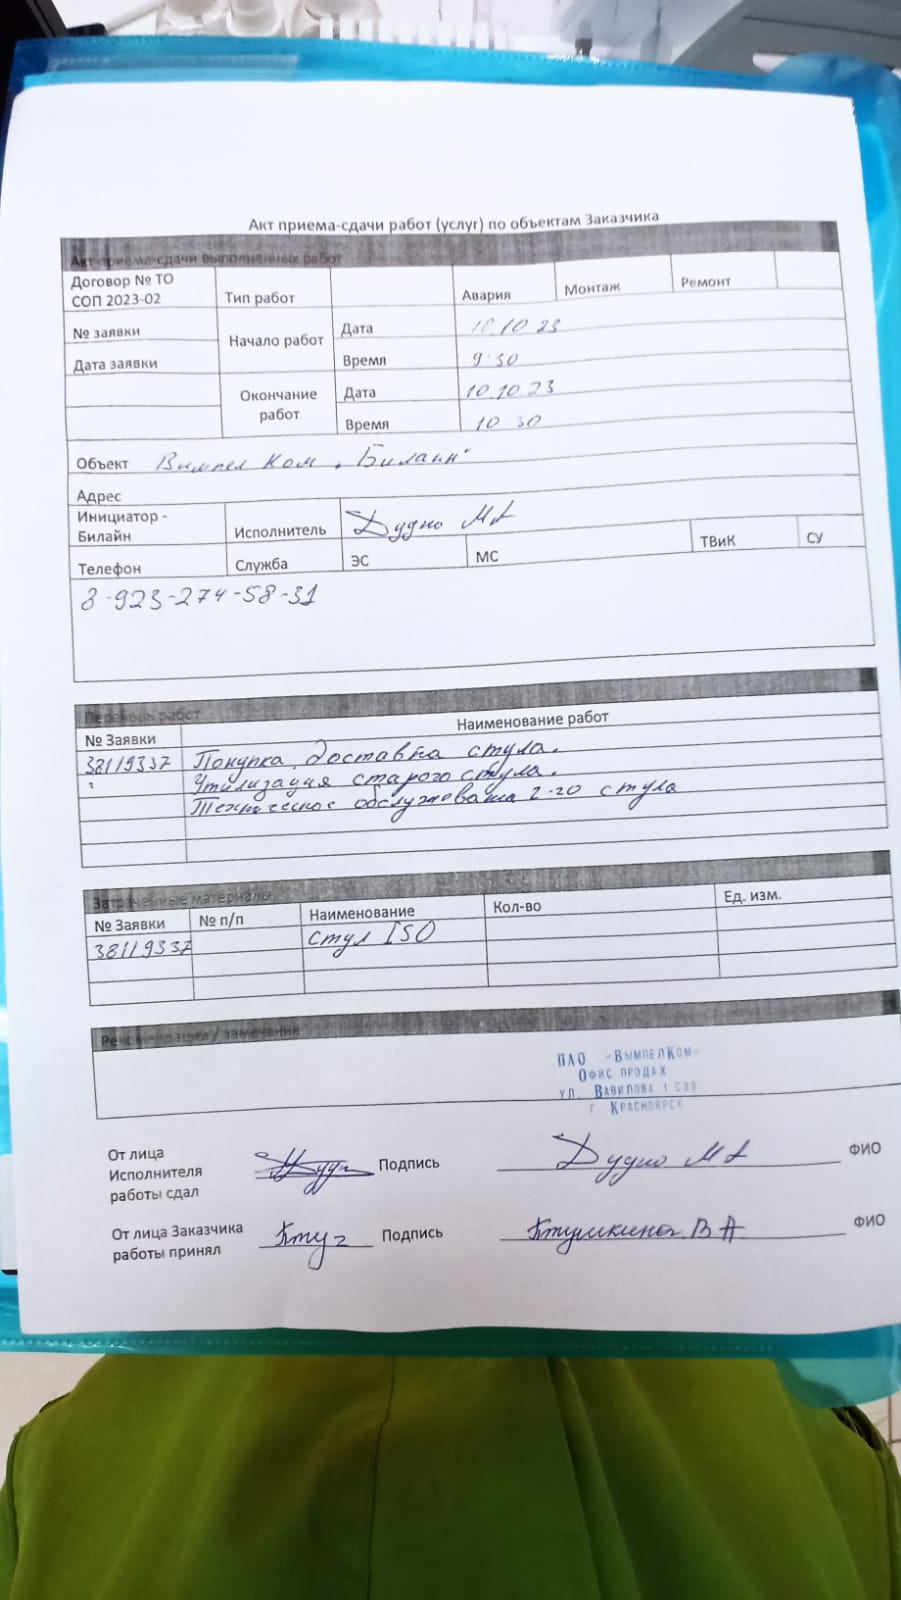 Акт приема-сдачи работ (услуг) по объектам Заказчика
Акт приема-сдачи выполненных работ
Договор № ТО СОП 2023-02 Тип работ Авария Монтаж Ремонт
№ заявки Начало работ Дата 10.10.23
Дата заявки Время 9:30
Окончание работ Дата 10.10.23
Время 10:30
Объект Вымпел Ком „Билайн"
Адрес
Инициатор - Билайн Исполнитель Дудко МА
Телефон Служба ЭС МС ТВиК СУ
8-923-274-58-31
Перечень работ
№ Заявки Наименование работ
38119337 Покупка, доставка стула.
Утилизация старого стула.
Техническое обслуживания 2-го стула
Затраченные материалы
№ Заявки № п/п Наименование Кол-во Ед. изм.
38119337 стул ISO
Рекомендации / замечания
ПАО «ВымпелКом»
Офис продаж
ул. Вавилова 1 с39
г. Красноярск
От лица Исполнителя работы сдал Подпись Дудко МА ФИО
От лица Заказчика работы принял Подпись В А ФИО